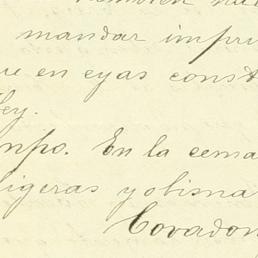 mandar impri
ue en eyas const
ley.
mpo. En la cema
ligeras y obisma
Covadon